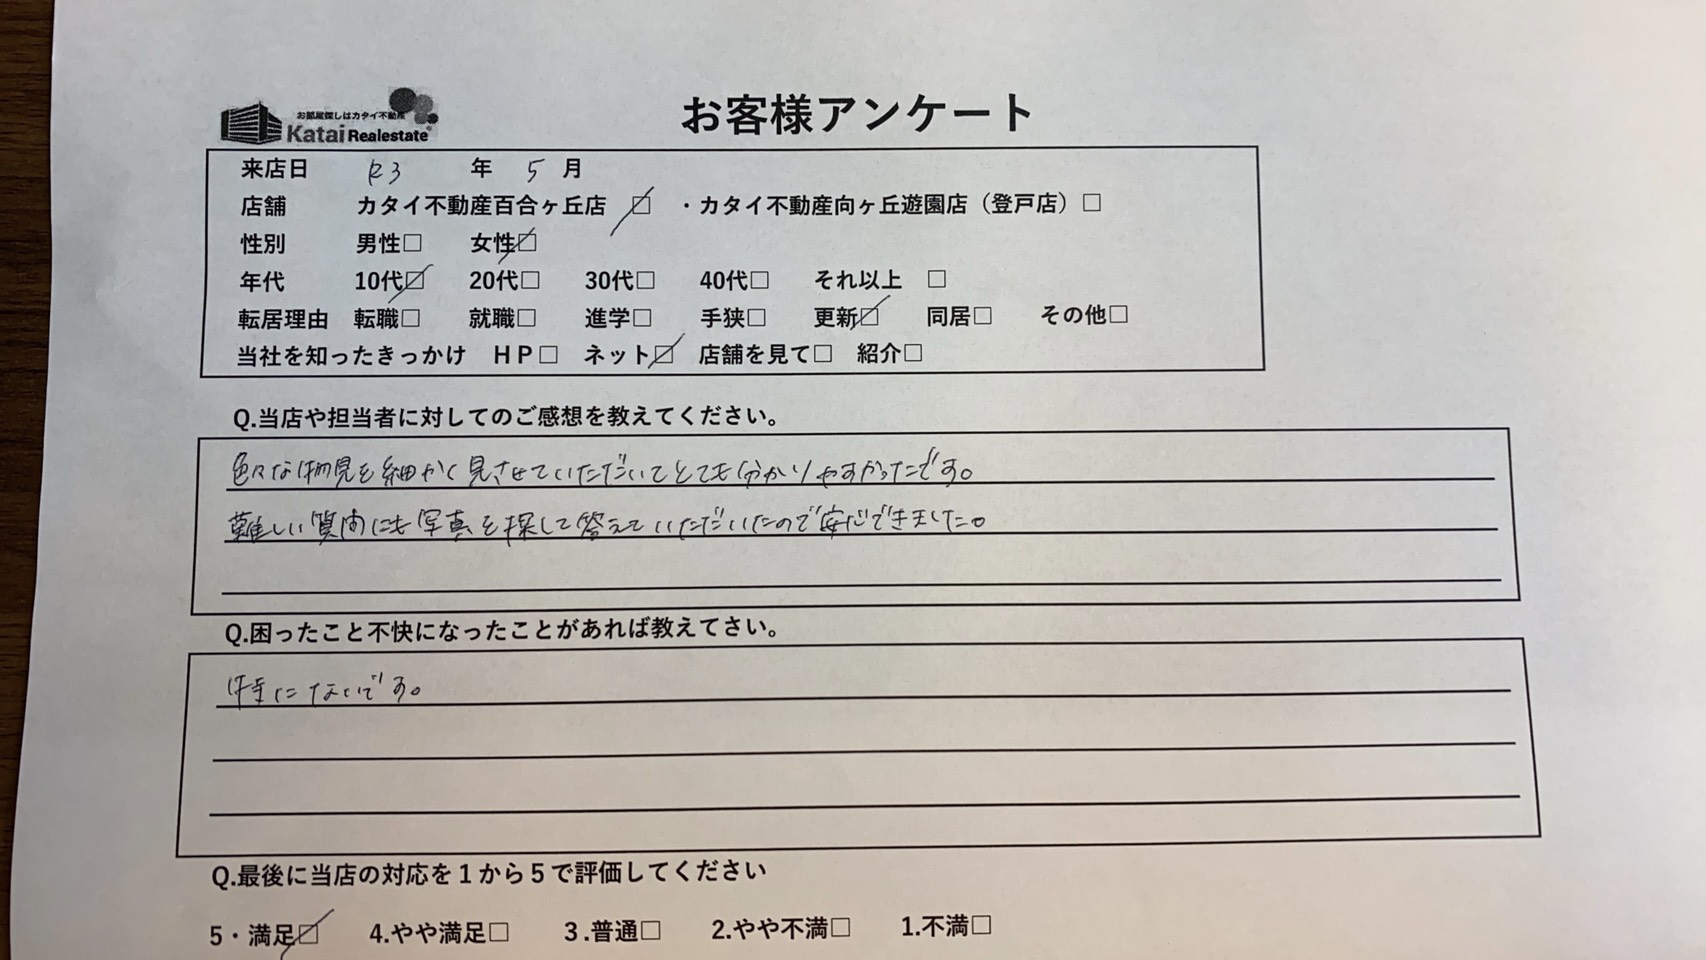 お部屋探しはカタイ不動産
Katai Realestate
お客様アンケート
来店日 R3 年 5 月
店舗 カタイ不動産百合ヶ丘店 ☑ ・カタイ不動産向ヶ丘遊園店（登戸店）□
性別 男性□ 女性☑
年代 10代☑ 20代□ 30代□ 40代□ それ以上 □
転居理由 転職□ 就職□ 進学□ 手狭□ 更新☑ 同居□ その他□
当社を知ったきっかけ ＨＰ□ ネット☑ 店舗を見て□ 紹介□
Q.当店や担当者に対してのご感想を教えてください。
色々な物見を細かく見させていただいてとても分かりやすかったです。
難しい質問にも写真を探して答えていただいたので安心できました。
Q.困ったこと不快になったことがあれば教えてさい。
特にないです。
Q.最後に当店の対応を１から５で評価してください
5・満足☑ 4.やや満足□ ３.普通□ 2.やや不満□ 1.不満□